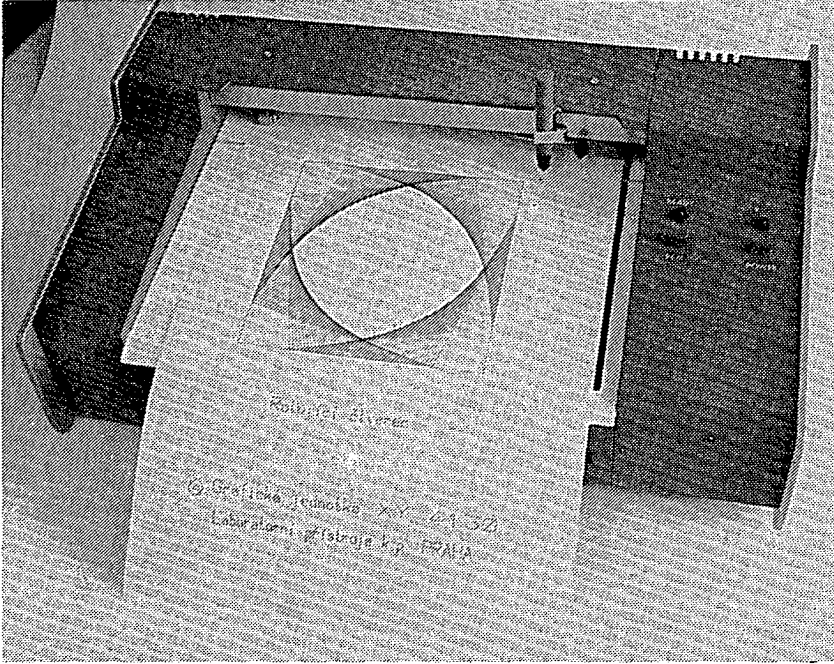 Rotující čtverec
© Grafická jednotka XY 4130
Laboratorní přístroje k.p. PRAHA